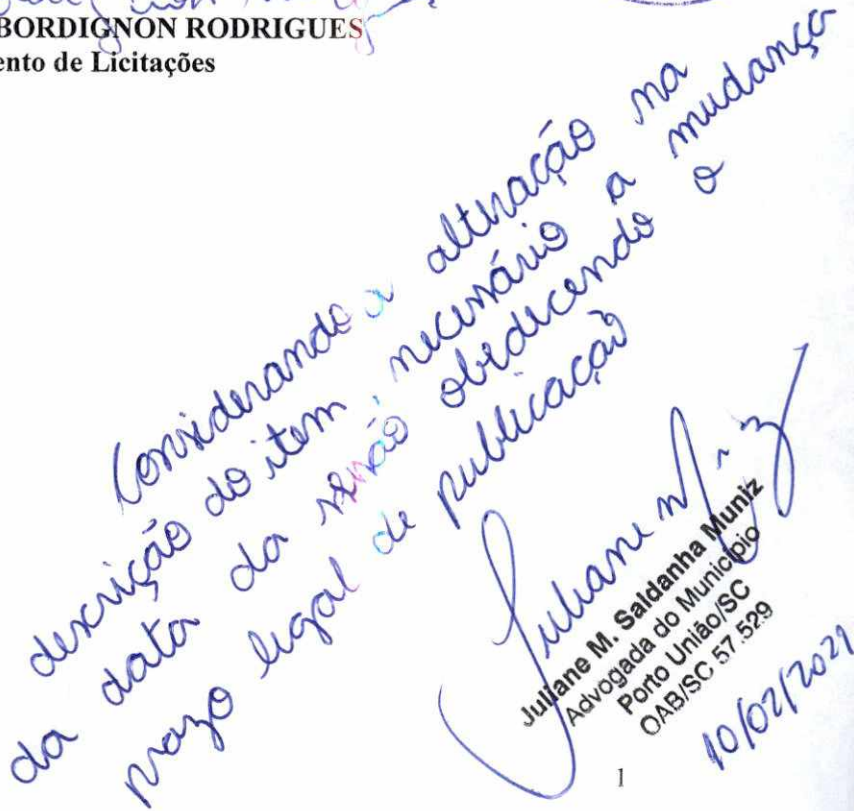 BORDIGNON RODRIGUES
ento de Licitações
Considerando a alteração na
descrição do item, necessário a mudança
da data da sessão obedecendo o
prazo legal de publicação
Juliane M. Saldanha Muniz
Advogada do Município
Porto União/SC
OAB/SC 57.529
10/02/2021
1